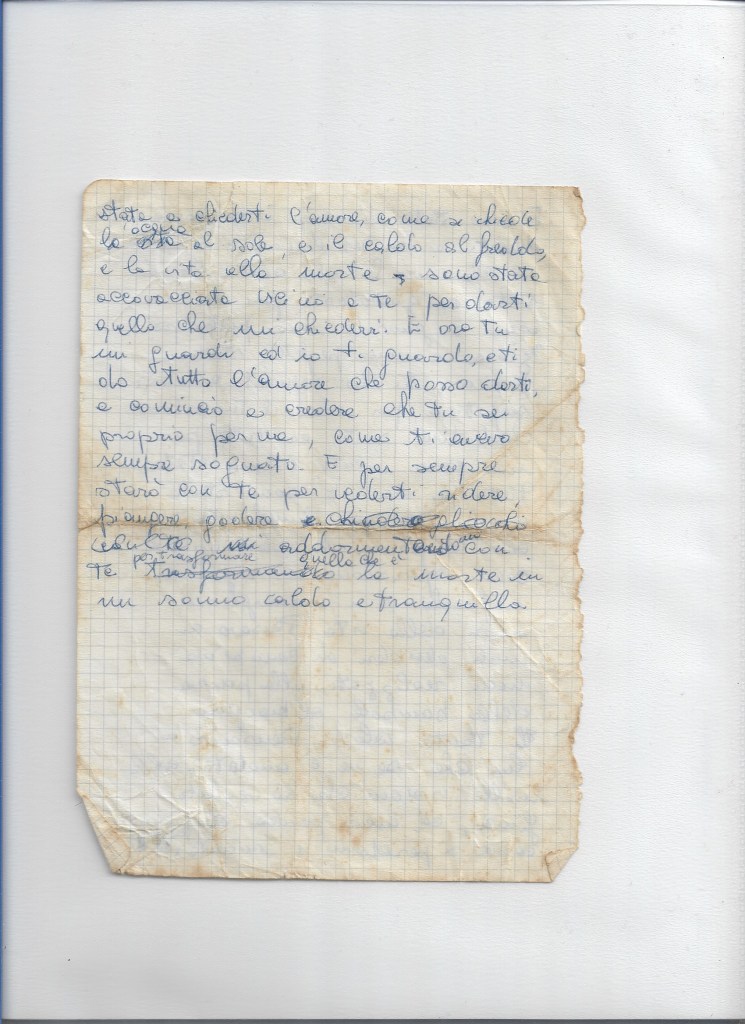 stata a chiederti l'amore, come si chiede
l'acqua al sole, e il caldo al freddo,
e la vita alla morte, sono stata
accovacciata vicino a te per darti
quello che mi chiedevi. E ora tu
mi guardi ed io ti guardo, e ti
do tutto l'amore che posso darti,
e comincio a credere che tu sei
proprio per me, come ti avevo
sempre sognato. E per sempre
starò con te per vederti ridere,
piangere godere e chiudere gli occhi
addormentando con
per trasformare quello che è
te trasformando la morte in
un sonno caldo e tranquillo